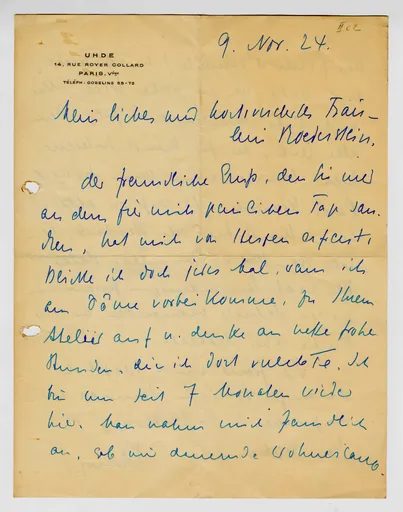 II c 2
9. Nov. 24.
UHDE
14, RUE ROYER COLLARD
PARIS. Vᵉ
TÉLÉPH: GOBELINS 58-72
Mein liebes und hochverehrtes Fräu-
lein Roederstein.
der freundliche Gruß, den Sie mir
an dem für mich peinlichen Tage san-
dten, hat mich von Herzen erfreut,
blicke ich doch jedes Mal, wenn ich
am Dôme vorbei komme, zu Ihrem
Atelier auf u. denke an nette frohe
Stunden, die ich dort verlebte. Ich
bin nun seit 7 Monaten wieder
hier. Man nahm mich freundlich
an, gab mir dauernde Wohnerlaub-